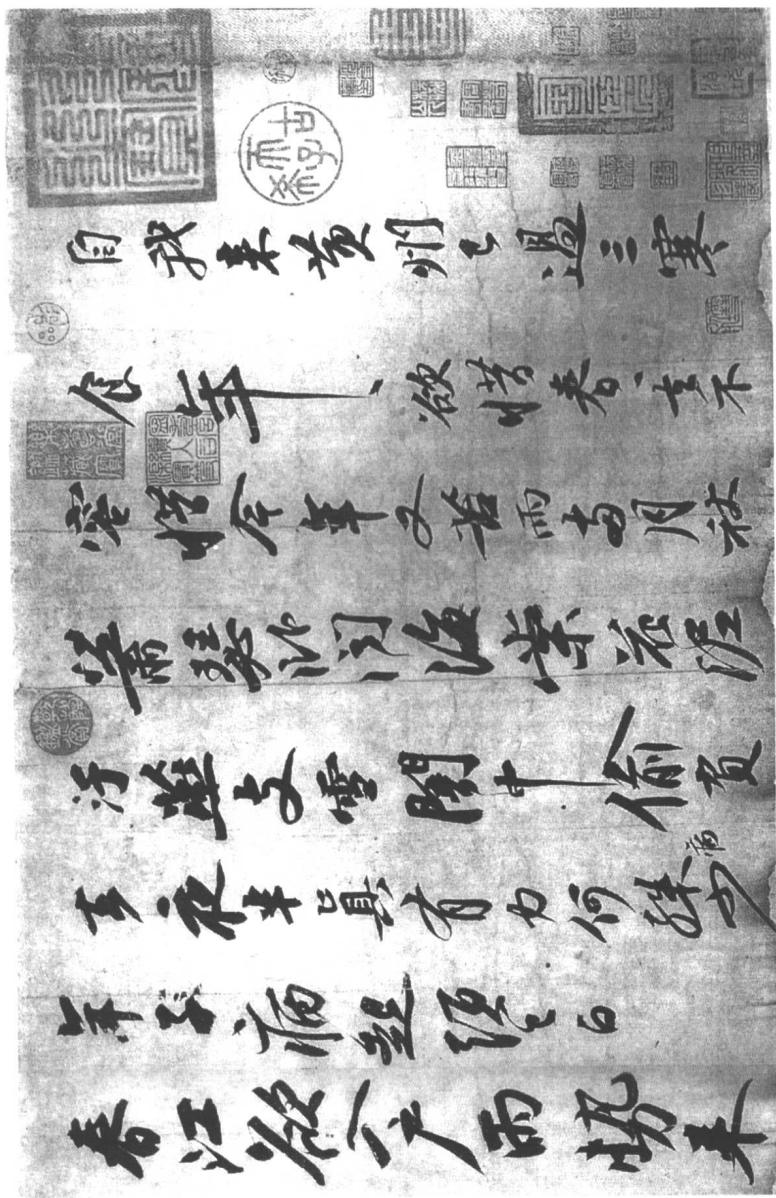 古希天子
自我來黃州已過三寒
食年〻欲惜春〻去不
容惜今年又苦雨兩月秋
蕭瑟卧聞海棠花泥
汙燕支雪闇中偷負
去夜半真有力何殊病少
年子病起頭已白
春江欲入户雨勢來